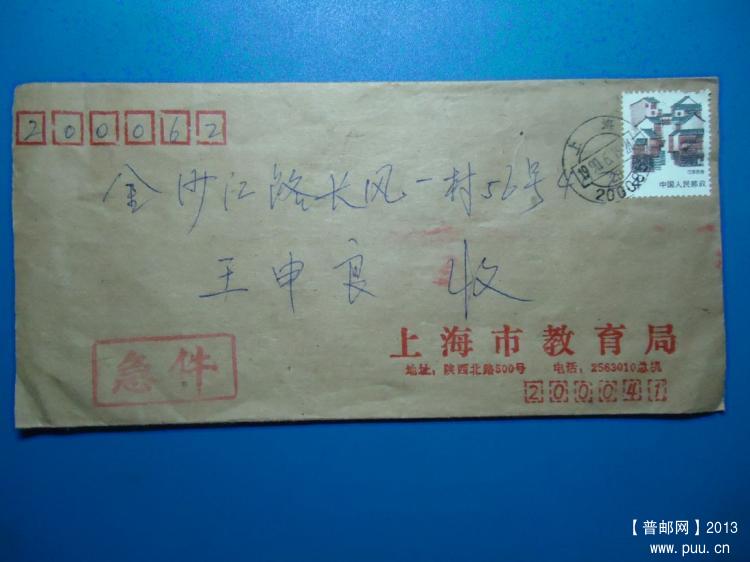 200062
金沙江路长风一村56号4
王申良 收
急件
上海市教育局
地址：陕西北路500号 电话：2563010总机
200041
上海
中国人民邮政
【普邮网】2013
www.puu.cn